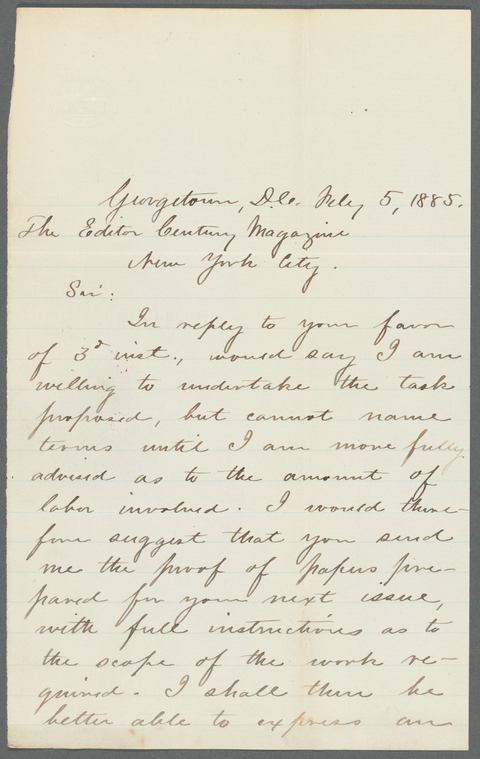 Georgetown, D.C. Feby 5, 1885.
The Editor Century Magazine
New York City.
Sir:
In reply to your favor
of 3d inst., would say I am
willing to undertake the task
proposed, but cannot name
terms until I am more fully
advised as to the amount of
labor involved. I would there-
fore suggest that you send
me the proof of papers pre-
pared for your next issue,
with full instructions as to
the scope of the work re-
quired. I shall then be
better able to express an